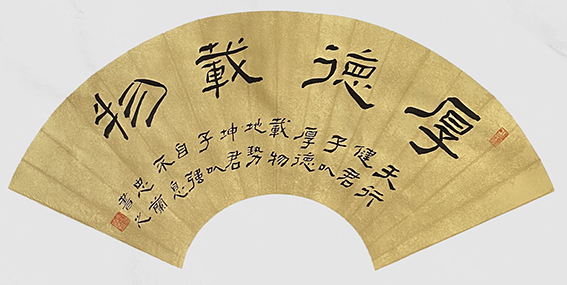 厚德載物
天行
健君
子以
厚德
載物
地勢
坤君
子以
自強
不息
忠蘭
書之